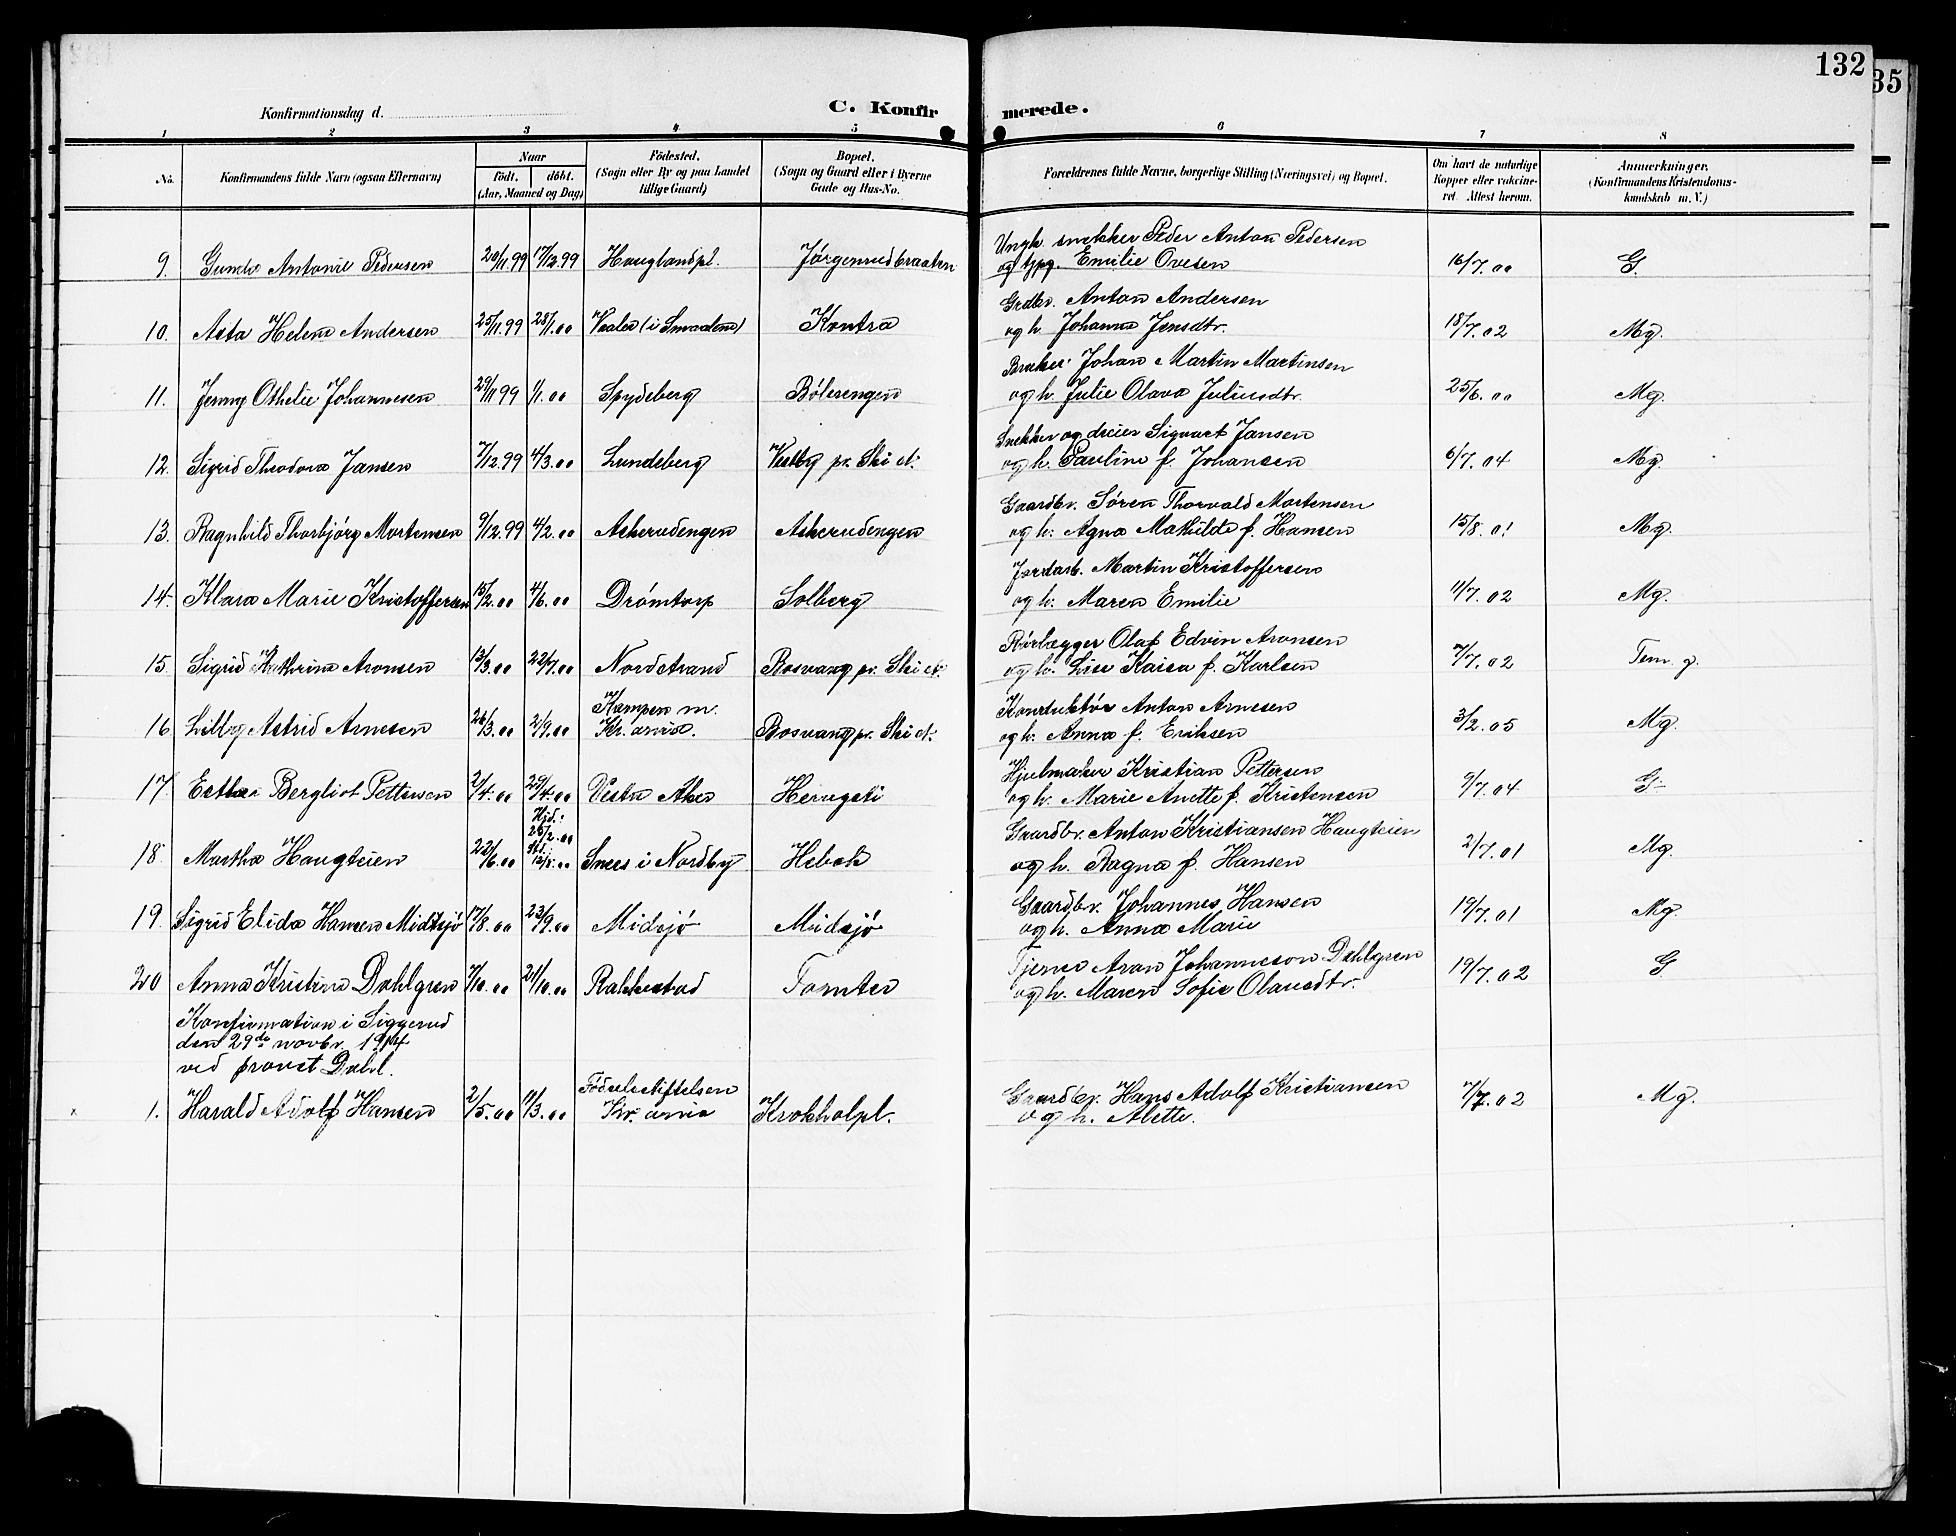 132
35
Konfirmationsdag d.
C. Konfirmerede.
1 2 3 4 5 6 7 8
No. Konfirmandens fulde Navn (ogsaa Efternavn) Naar födt. döbt. (Aar, Maaned og Dag) Födested. (Sogn eller By og paa Landet tillige Gaard) Bopæl. (Sogn og Gaard eller i Byerne Gade og Hus-No. Forældrenes fulde Navne, borgerlige Stilling (Næringsvei) og Bopæl. Om havt de naturlige Kopper eller vakcineret. Attest herom. Anmærkninger. (Konfirmandens Kristendomskundskab m. V.)
Ungk. snekker Peder Anton Pedersen
9. Gunda Antonie Pedersen 20/11.99 17/12.99 Hauglandpl. Jørgenrudbraaten og tjpg. Emilie Ovesen 16/7.00 G.
Grdbr. Anton Andersen
10. Asta Helene Andersen 25/11.99 28/1.00 Vaaler (i Smaalene) Kontra og h. Johanne Jensdtr. 18/7.02 Mg.
Bruker Johan Martin Martinsen
11. Jenny Othelie Johannesen 29/11.99 1/1.00 Spydeberg Bølerengen og h. Julie Olava Juliusdtr. 25/6.00 Mg.
Snekker og dreier Sigvart Jansen
12. Sigrid Theodora Jansen 7/12.99 4/3.00 Lundeberg Vestby pr. Ski st. og h. Pauline f. Johansen 6/7.04 Mg.
Gaardbr. Søren Thorvald Mortensen
13. Ragnhild Thorbjørg Mortensen 9/12.99 4/2.00 Askerudengen Askerudengen og h. Agna Mathilde f. Hansen 15/8.01 Mg.
Jordarb. Martin Kristoffersen
14. Klara Marie Kristoffersen 15/2.00 4/6.00 Drömtorp Solberg og h. Maren Emilie 11/7.02 Mg.
Rørlægger Olaf Edvin Aronsen
15. Sigrid Kathrine Aronsen 13/3.00 22/7.00 Nordstrand Bosvang pr. Ski st. og h. Lise Kaisa f. Karlsen 7/7.02 Tem. g.
Kampen m. Konduktör Anton Arnesen
16 Lilly Astrid Arnesen 26/3.00 2/9.00 Kr.ania. Bosvang pr. Ski st. og h. Anna f. Eriksen 3/2.05 Mg.
Hjulmaker Kristian Pettersen
17. Esther Bergliot Pettersen 2/4.00 29/4.00 Vestre Aker Herugsti og h. Marie Anette f. Kristensen 9/7.04 G
Hjd.: 26/2.00 Gaardbr. Anton Kristiansen Haugteien
18. Martha Haugteien 22/6.00 12/8.00 Snees i Nordby Hebæk og h. Ragna f. Hansen 2/7.01 Mg.
Gaardbr. Johannes Hansen
19. Sigrid Elida Hansen Midtsjø 17/8.00 23/9.00 Midsjø Midsjø og h. Anna Marie 19/7.01 Mg.
Tjener Aron Johanneson Dahlgren
20 Anna Kristine Dahlgren 7/10.00 21/10.00 Rakkestad Tomter og h. Maren Sofie Olausdtr. 19/7.02 G
Konfirmation i Siggerud
den 29de novbr. 1914
ved provst Dahl.
Fødselsstiftelsen Gaardbr. Hans Adolf Kristiansen
1. Harald Adolf Hansen 2/5.00 11/3.00 Kr.ania Krokholpl. og h. Alette. 7/7.02 Mg.